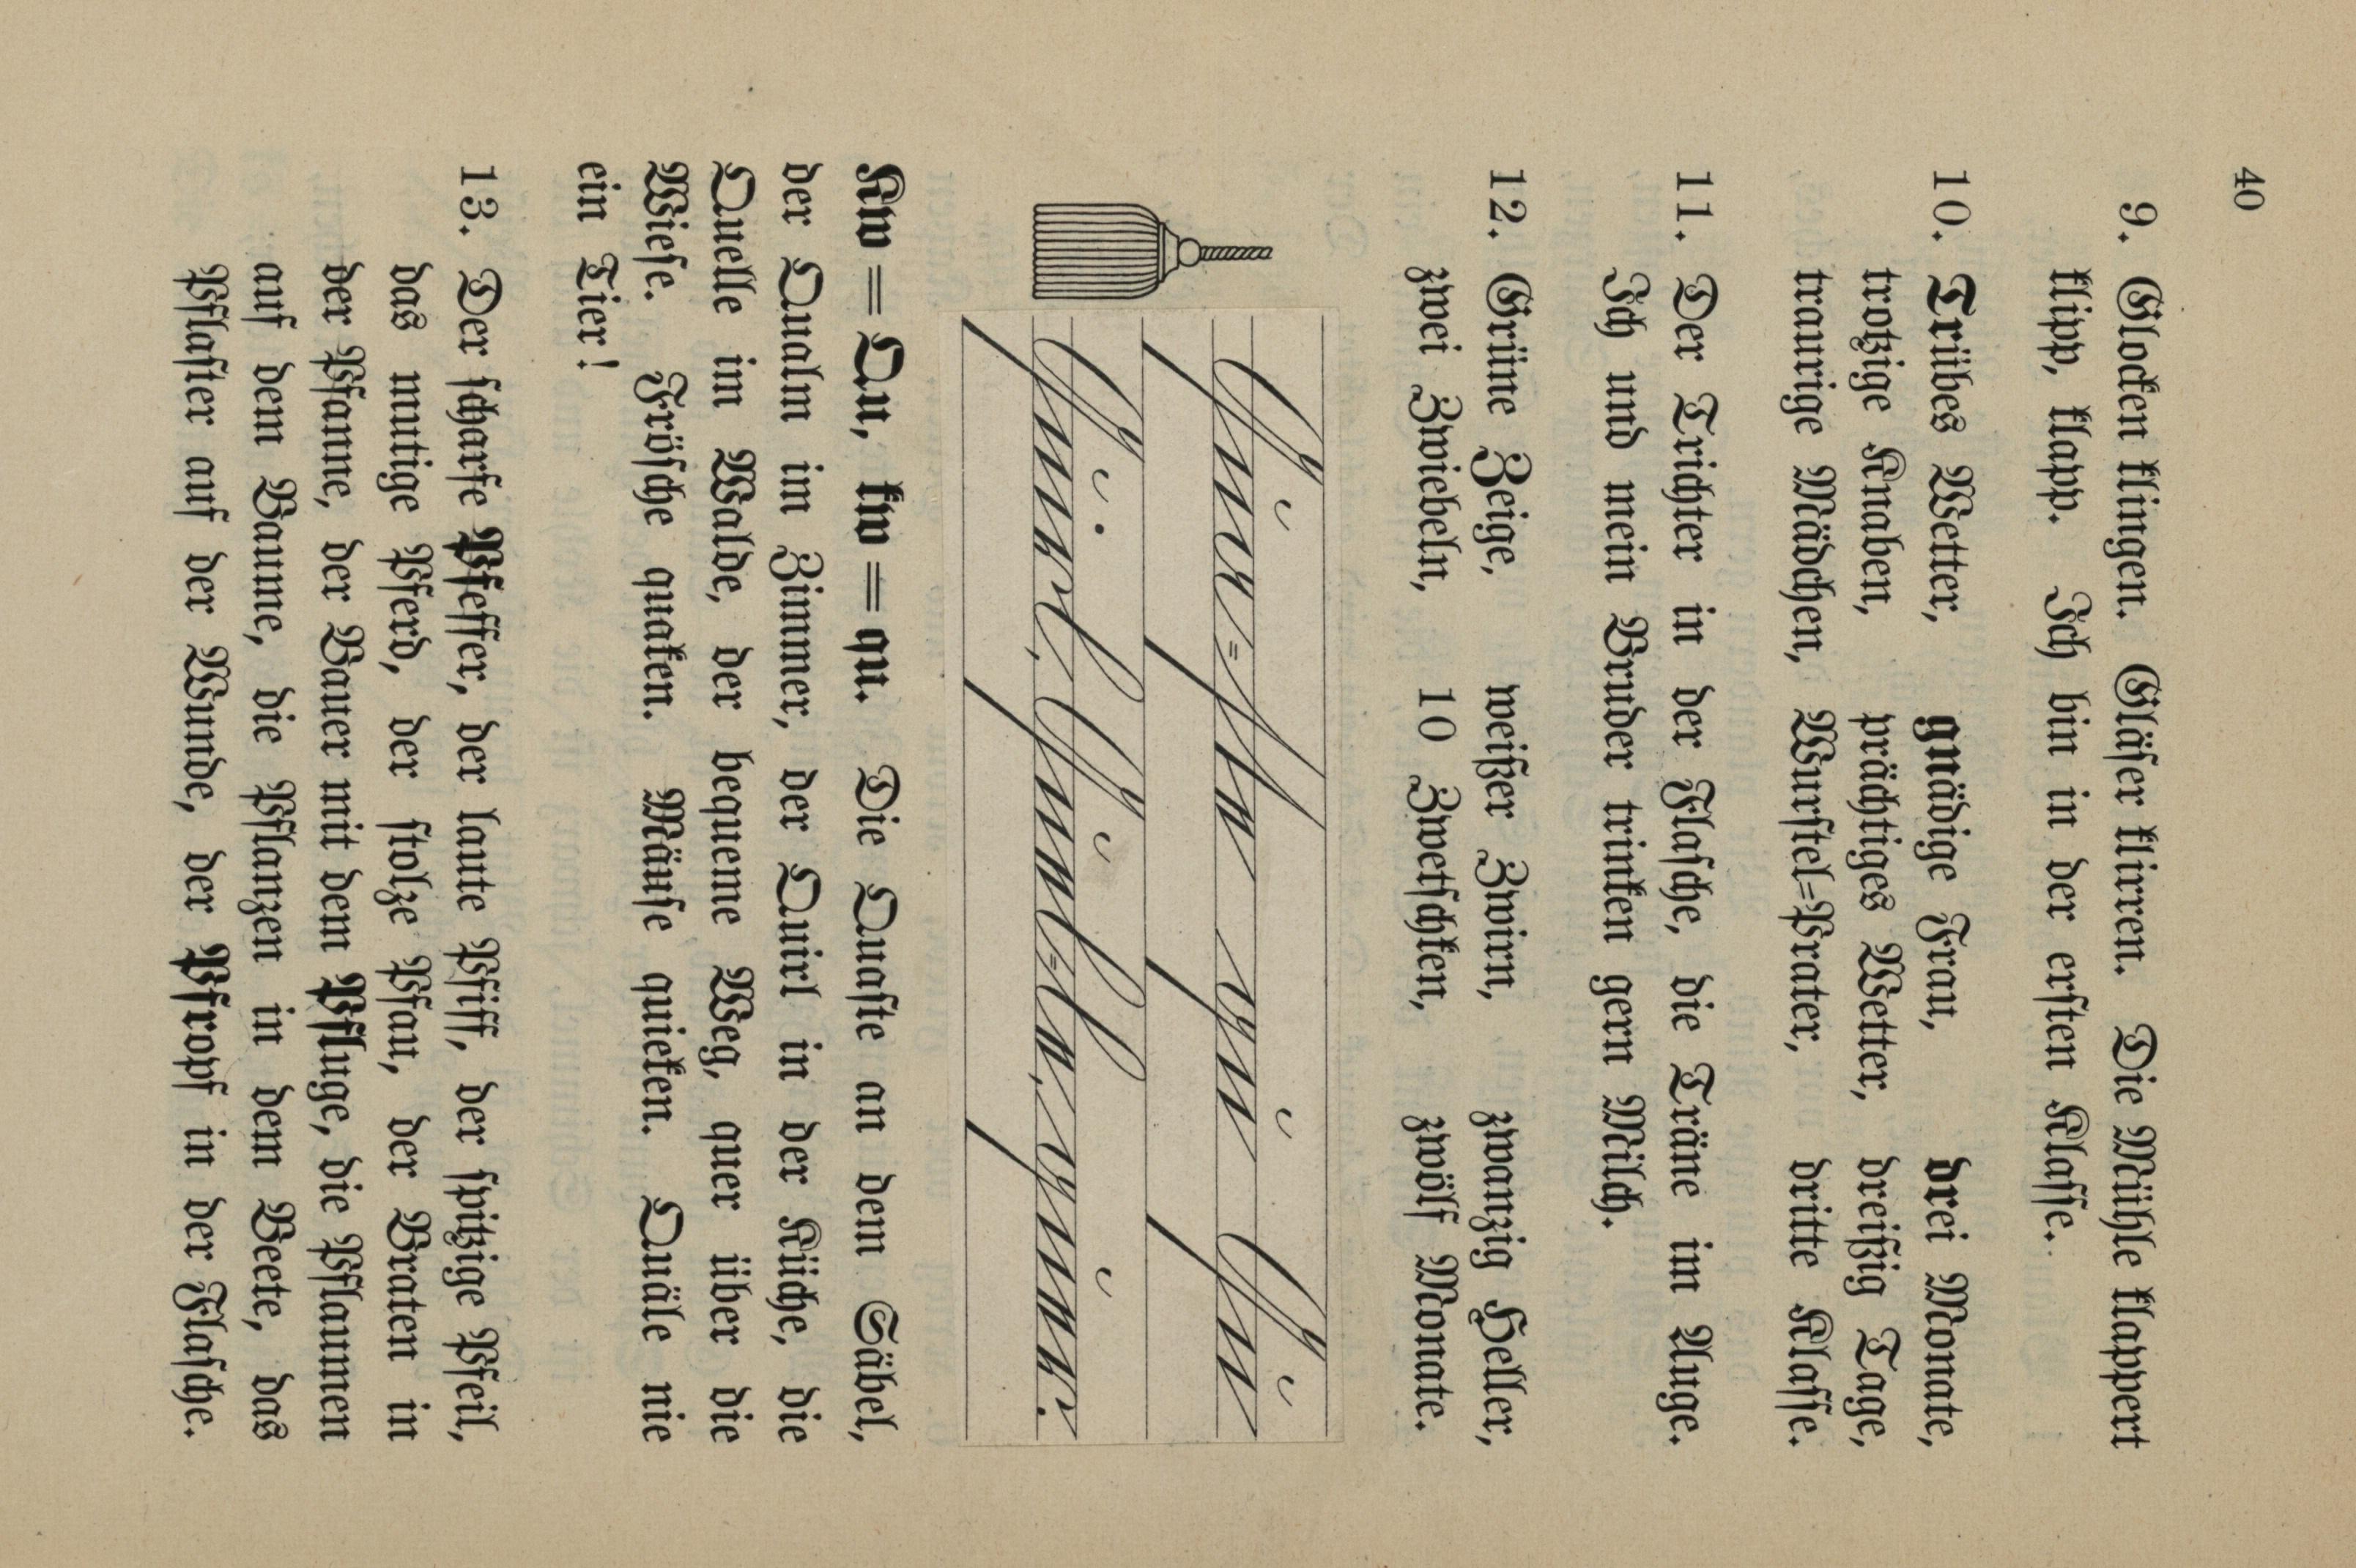 40
9. Glocken klingen. Gläser klirren. Die Mühle klappert
klipp, klapp. Ich bin in der ersten Klasse.
10. Trübes Wetter, gnädige Frau, drei Monate,
trotzige Knaben, prächtiges Wetter, dreißig Tage,
traurige Mädchen, Wurstel=Prater, dritte Klasse.
11. Der Trichter in der Flasche, die Träne im Auge.
Ich und mein Bruder trinken gern Milch.
12. Grüne Zeige, weißer Zwirn, zwanzig Heller,
zwei Zwiebeln, 10 Zwetschken, zwölf Monate.
Qua=ste qu Qu
Quirl, Quel=le, quer.
Kw = Qu, kw = qu. Die Quaste an dem Säbel,
der Qualm im Zimmer, der Quirl in der Küche, die
Quelle im Walde, der bequeme Weg, quer über die
Wiese. Frösche quaken. Mäuse quieken. Quäle nie
ein Tier!
13. Der scharfe Pfeffer, der laute Pfiff, der spitzige Pfeil,
das mutige Pferd, der stolze Pfau, der Braten in
der Pfanne, der Bauer mit dem Pfluge, die Pflaumen
auf dem Baume, die Pflanzen in dem Beete, das
Pflaster auf der Wunde, der Pfropf in der Flasche.